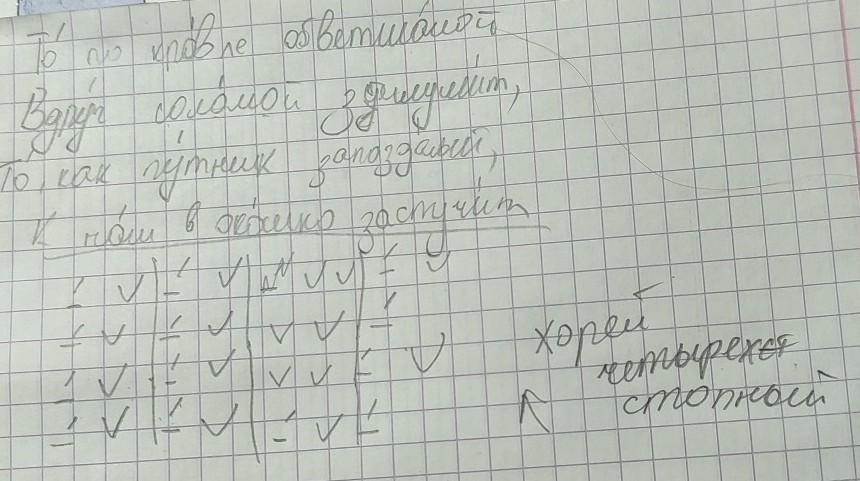 То по кровле обветшалой
Вдруг соломой зашумит,
То, как путник запоздалый,
К нам в окошко застучит
— ∨ | — ∨ | ∨ ∨ | — ∨
— ∨ | — ∨ | ∨ ∨ | —
— ∨ | — ∨ | ∨ ∨ | — ∨
— ∨ | — ∨ | — ∨ | —
хорей
четырехст
стопный